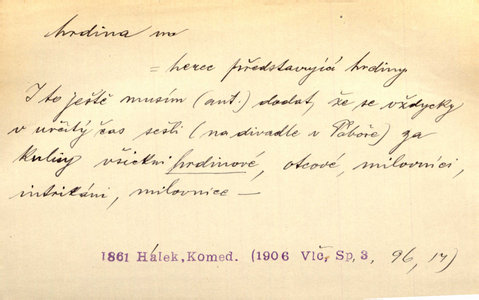 hrdina m
= herec představující hrdiny
I to ještě musím (aut.) dodat, že se vždycky
v určitý čas sešli (na divadle v Táboře) za
kulisy všickni hrdinové, otcové, milovníci,
intrikáni, milovnice —
1861 Hálek, Komed. (1906 Vlč, Sp, 3, 96, 17)